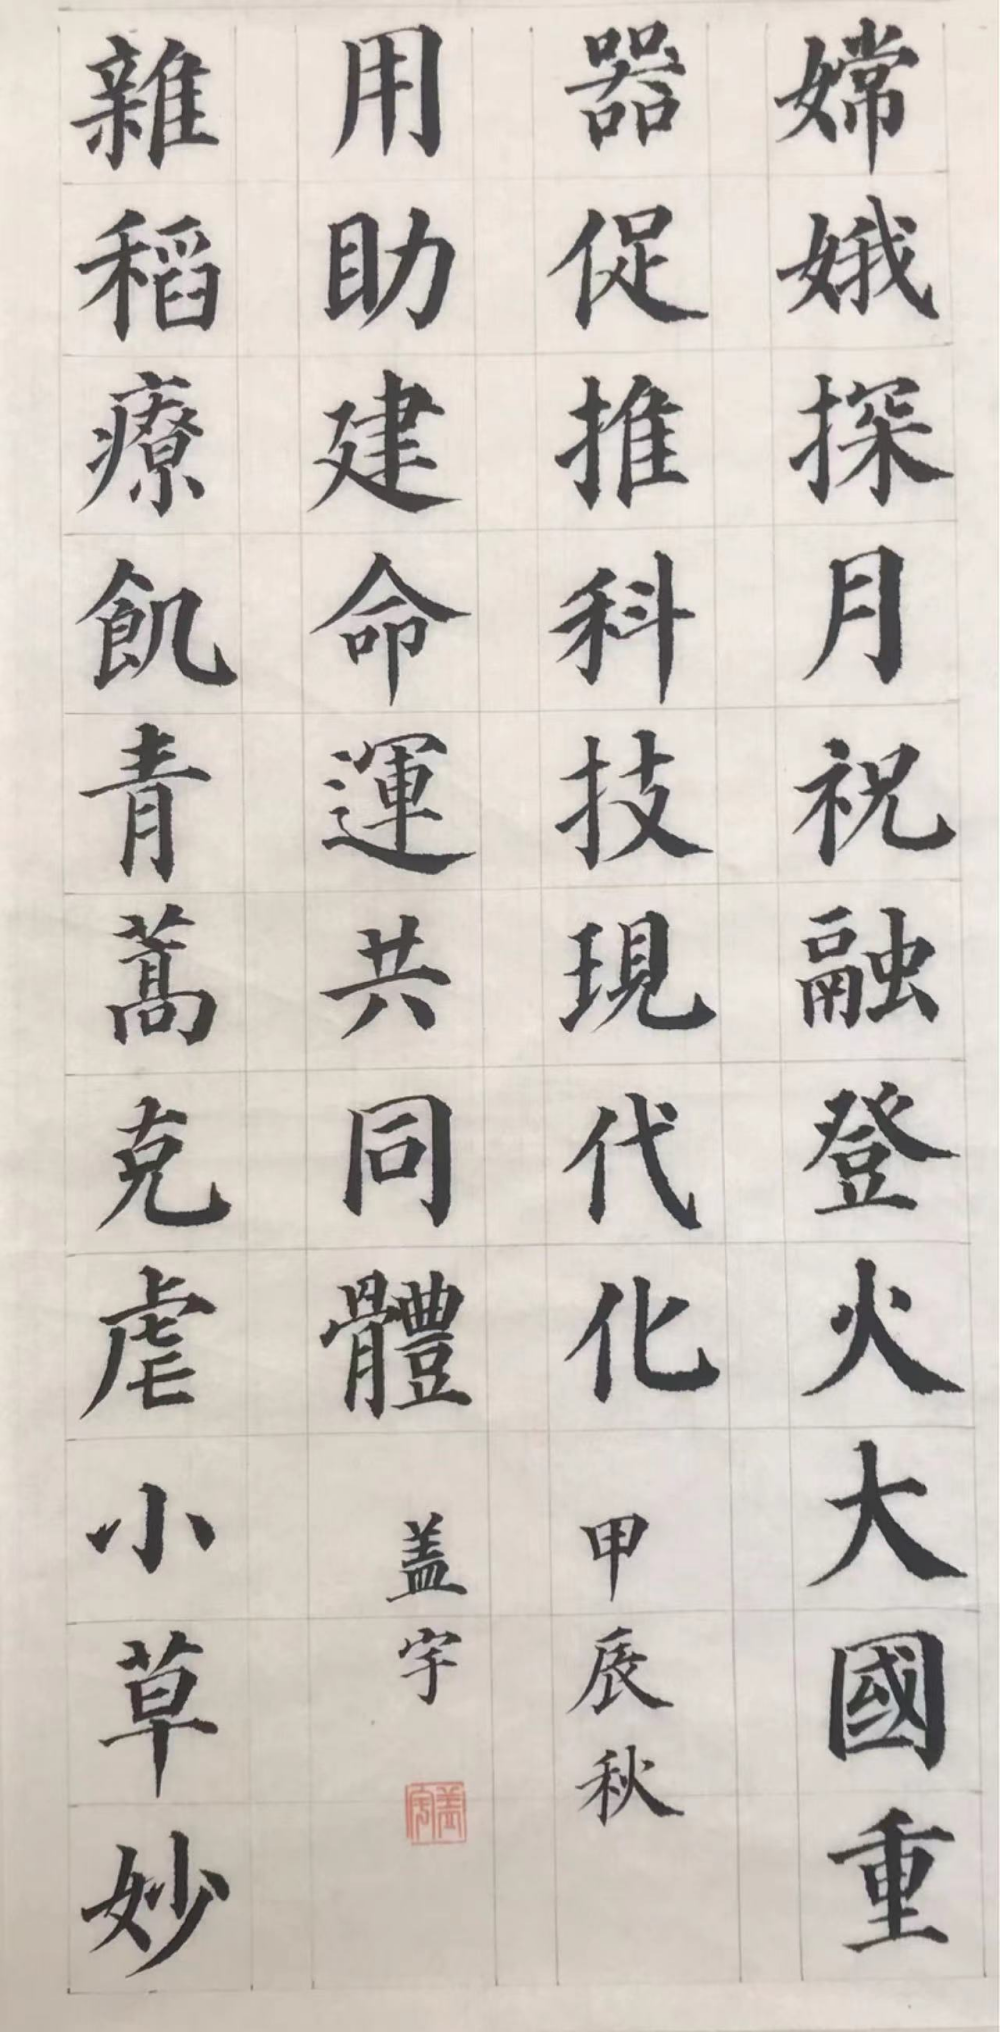 嫦娥探月祝融登火大國重
器促推科技現代化
甲辰秋
雜稻療飢青蒿克虐小草妙
用助建命運共同體
盖宇
盖宇